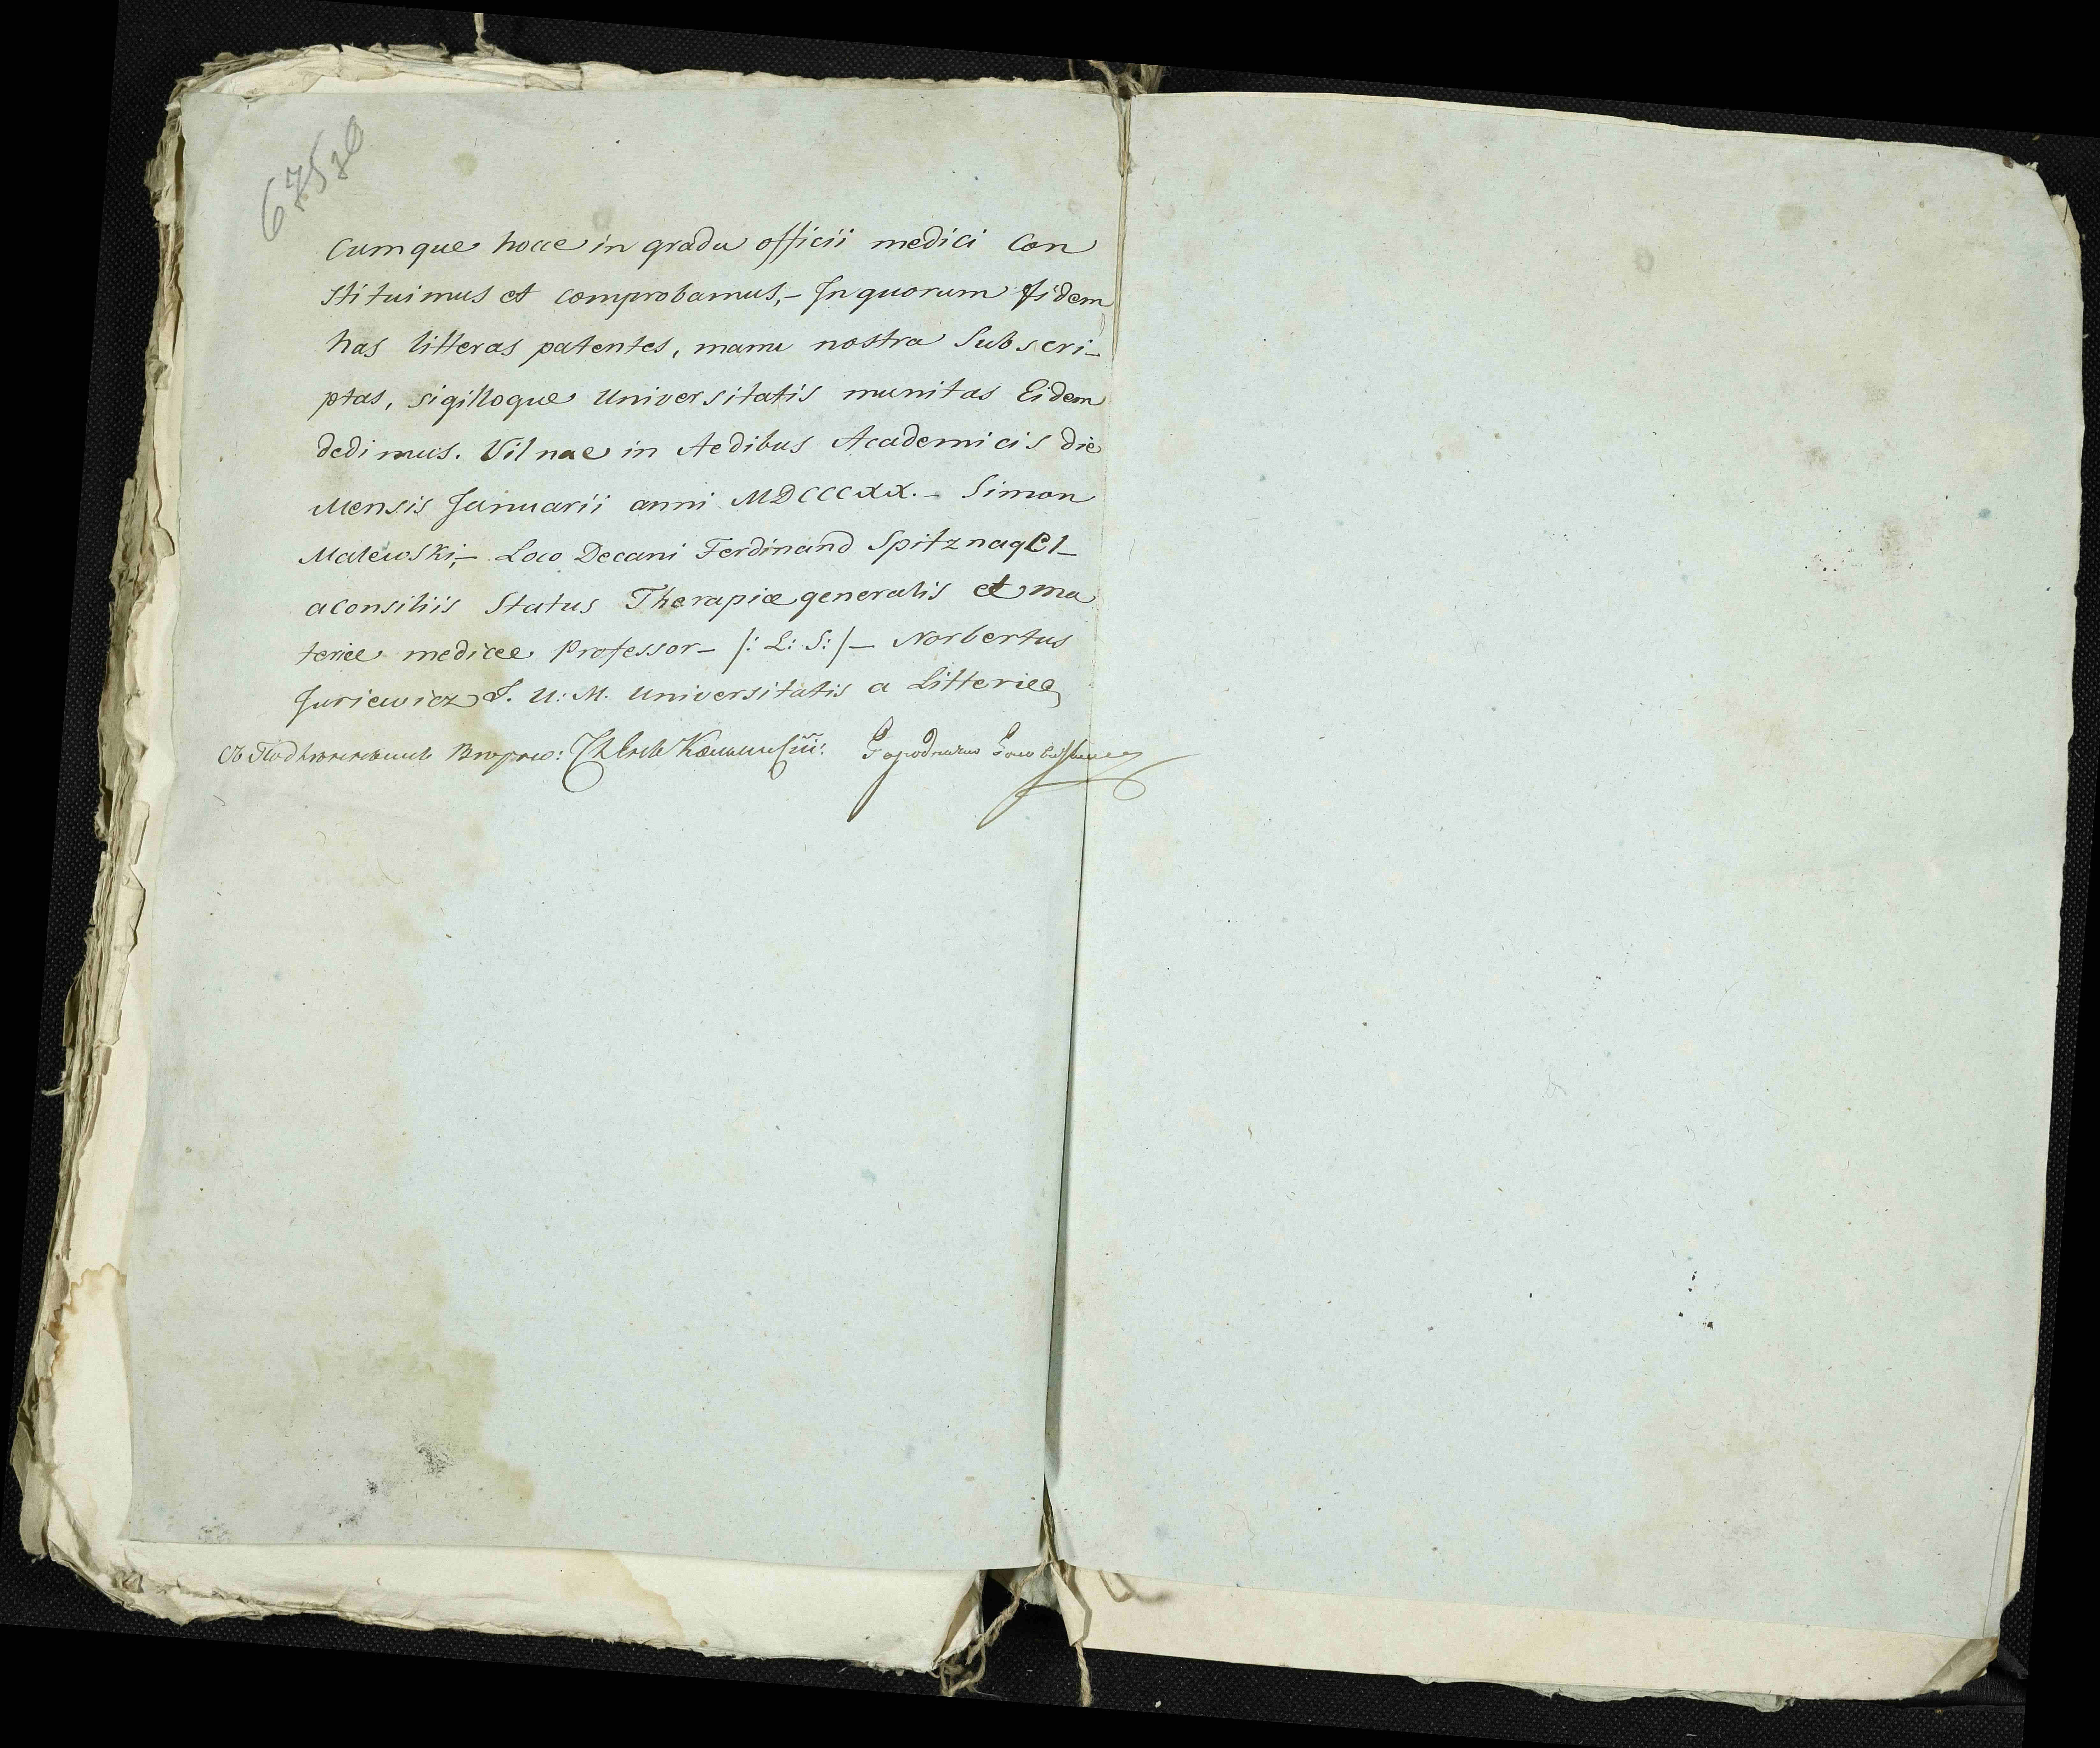 Cumque hocce in gradu officii medici con
stituimus et comprobamus,- In quorum fidem
has litteras patentes, manu nostra Subscri-
ptas, sigilloque Universitatis munitas Eidem
dedimus. Vilnae in Aedibus Academicis die
Mensis Januarii anni MDCCCXX.- Simon
Malewski,- Loco Decani Ferdinand Spitznagel-
a consiliis Status Therapiæ generalis et ma
teriæ medicæ Professor- /: L: S: /- Norbertus
Juriewicz I. U: M. Universitatis a Litteriis
Съ Подлиннымъ Верно: